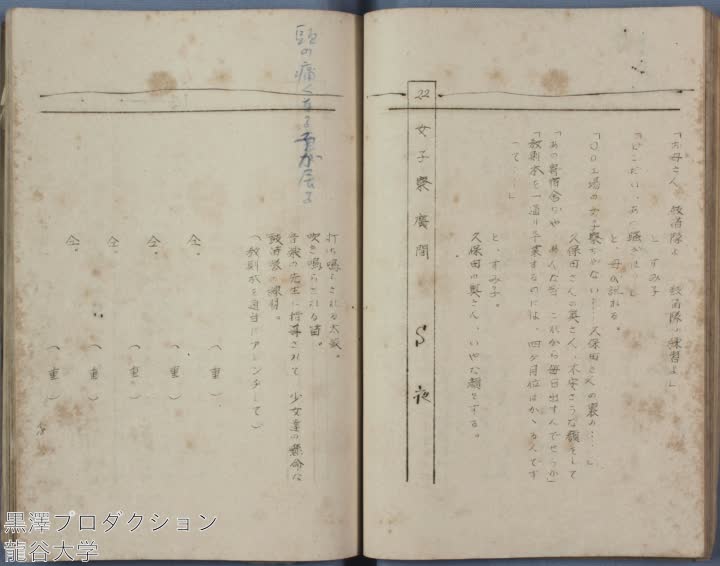 「お母さん、鼓笛隊よ　鼓笛隊の練習よ」
と、すみ子
「どこだい、あの騒ぎは」
と、母が訊れる。
「〇〇工場の女子寮ぢやない……久保田さんの裏の……」
久保田さんの奥さん、不安さうな顔をして
「あの寄宿舎ぢや　あんな音、これから毎日出すんでせうか」
「教則本を一通り卒業するのには、四ケ月位はかゝるんです
って……」
と、すみ子。
久保田の奥さん、いやな顔をする。
22　女子寮廣間　S　夜
頭の痛くなる
打ち鳴らされる太鼓。
吹き鳴らされる笛。
音楽の先生に指導されて　少女達の懸命な
鼓笛隊の練習。
（教則本を適当にアレンヂして）
（O・L）
仝。（O・L）
仝。（O・L）
仝。（O・L）
仝。（O・L）
黒澤プロダクション
龍谷大学